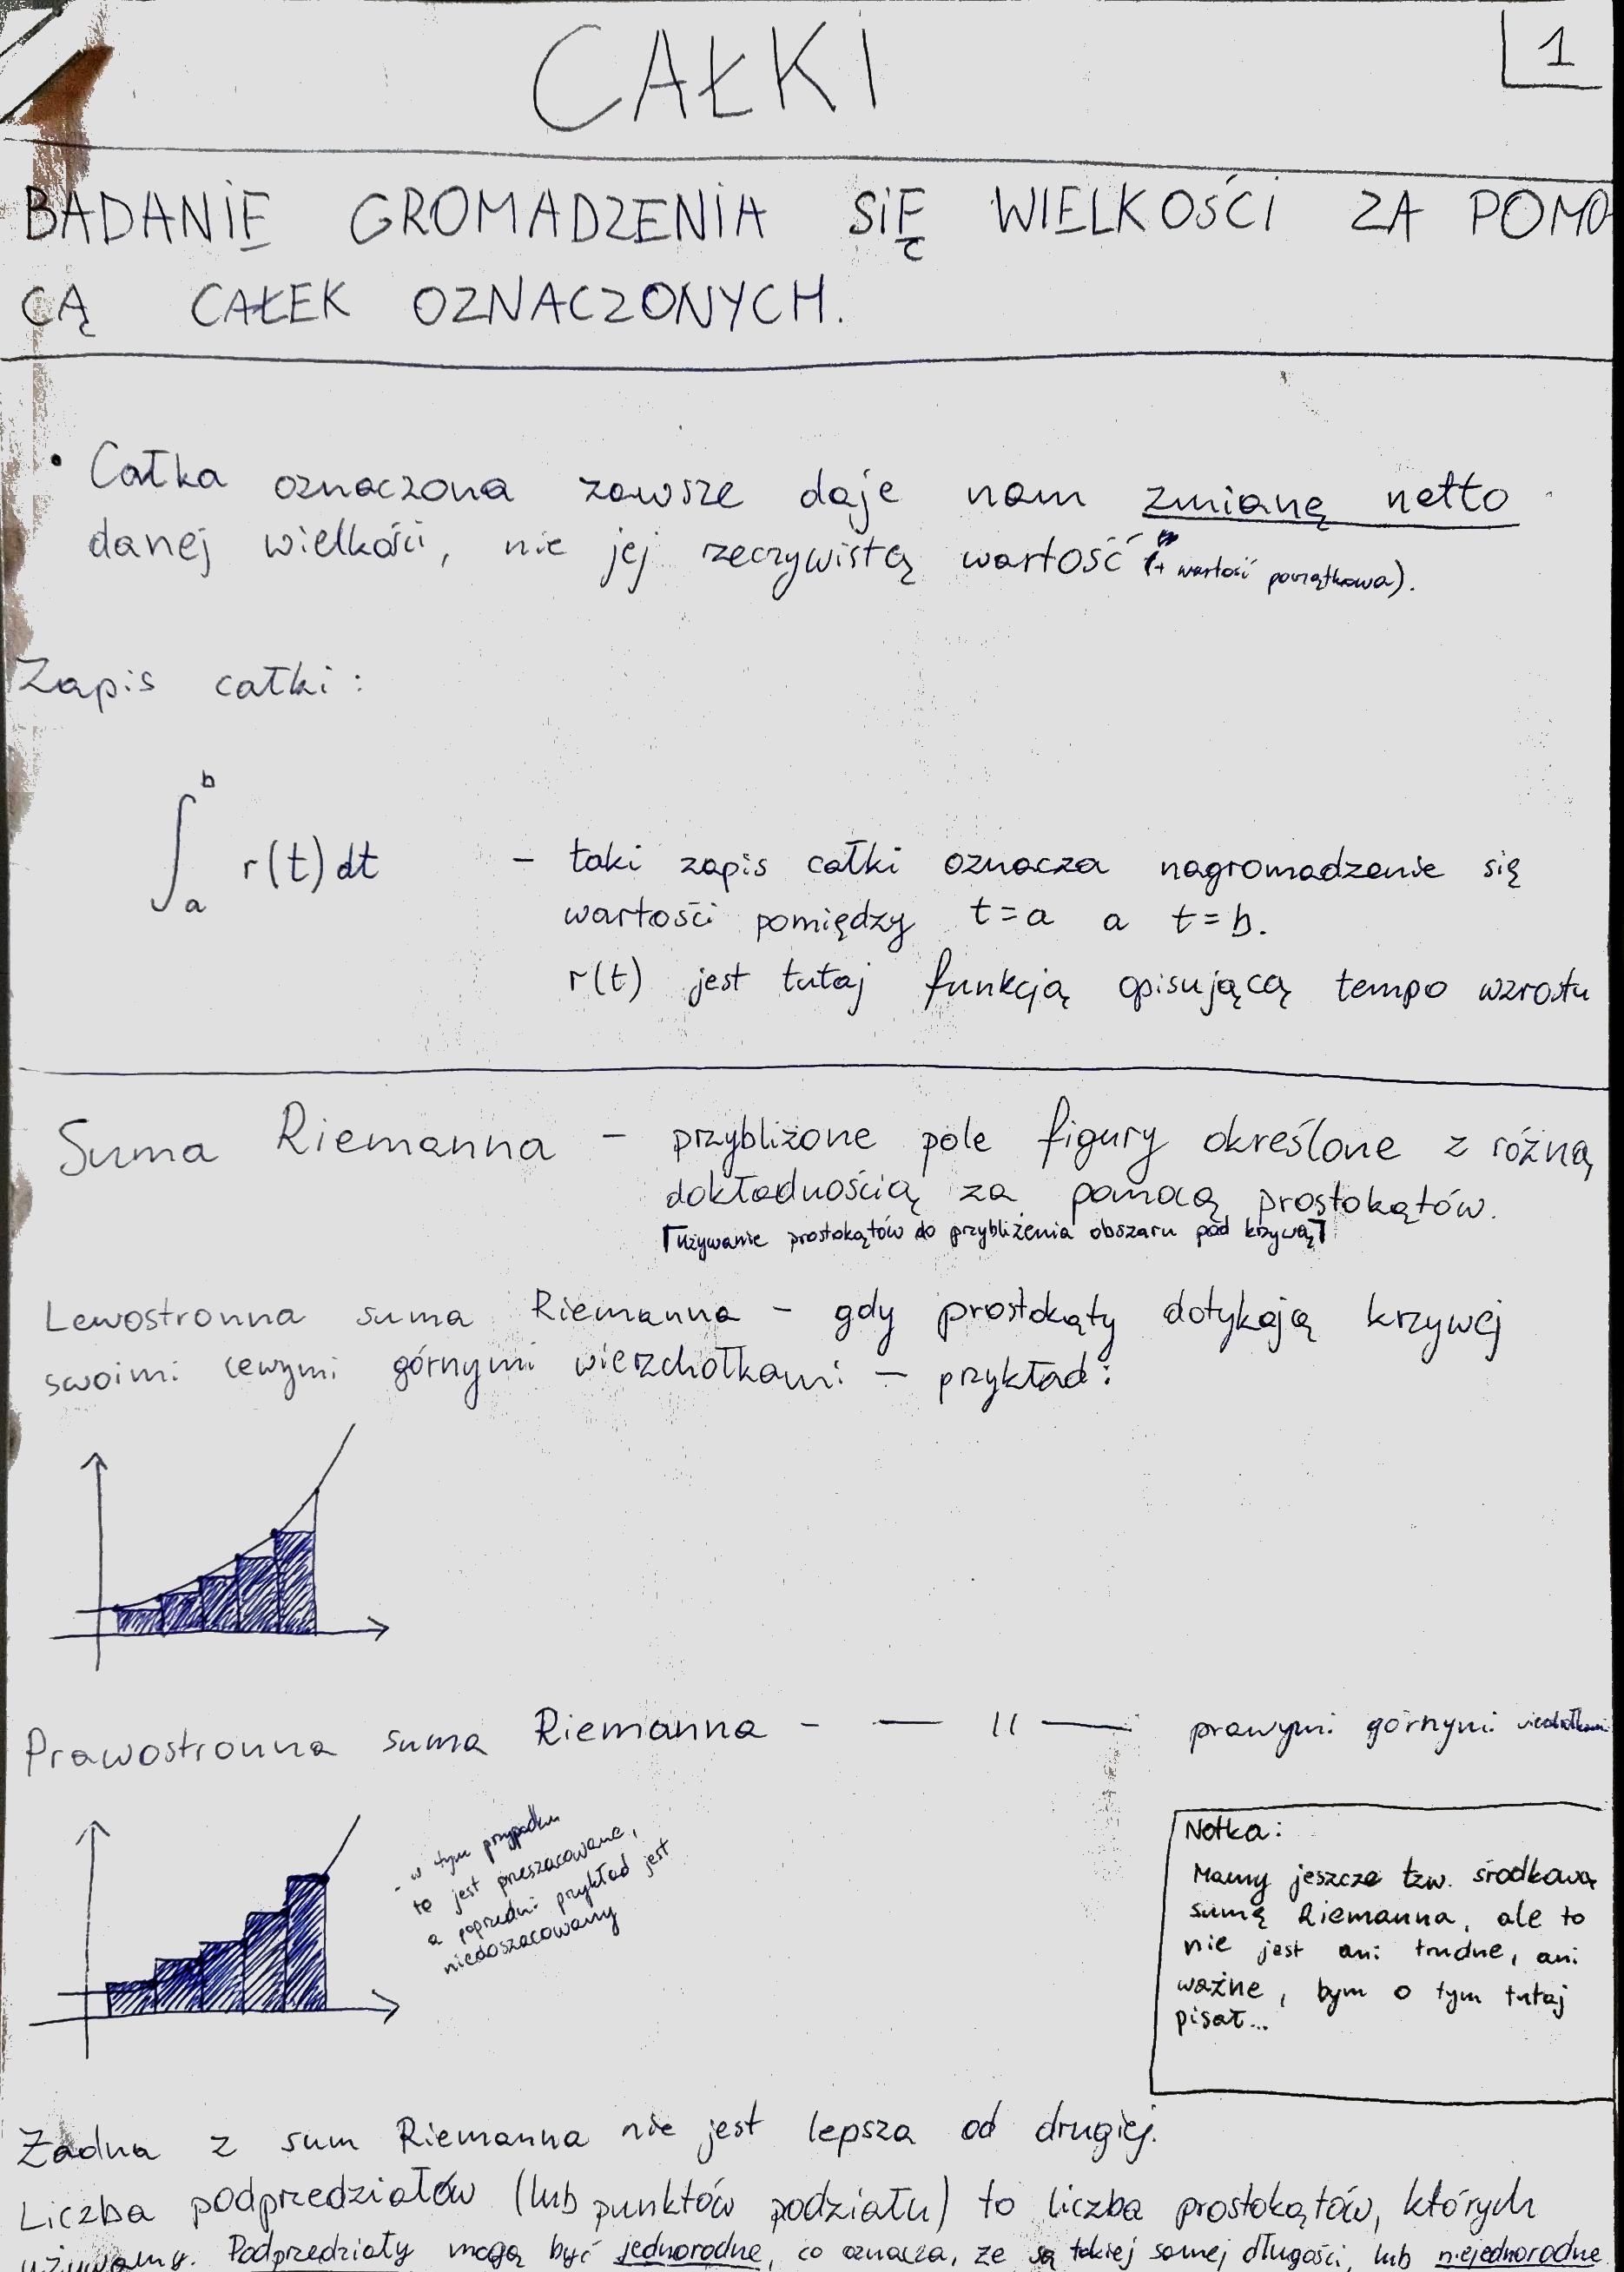 CAŁKI
1
BADANIE GROMADZENIA SIĘ WIELKOŚCI ZA POMO
CĄ CAŁEK OZNACZONYCH.
• Całka oznaczona zawsze daje nam zmianę netto
danej wielkości, nie jej rzeczywistą wartość (+ wartość początkowa).
Zapis całki:
∫_a^b r(t) dt – taki zapis całki oznacza nagromadzenie się
wartości pomiędzy t=a a t=b.
r(t) jest tutaj funkcją opisującą tempo wzrostu
Suma Riemanna – przybliżone pole figury określone z różną
dokładnością za pomocą prostokątów.
[używanie prostokątów do przybliżenia obszaru pod krzywą]
Lewostronna suma Riemanna – gdy prostokąty dotykają krzywej
swoimi lewymi górnymi wierzchołkami – przykład:
Prawostronna suma Riemanna – — 11 — prawymi górnymi wierzchołkami
- w tym przypadku
to jest przeszacowane,
a poprzedni przykład jest
niedoszacowany
Notka:
Mamy jeszcze tzw. środkową
sumę Riemanna, ale to
nie jest ani trudne, ani
ważne, bym o tym tutaj
pisał...
Żadna z sum Riemanna nie jest lepsza od drugiej.
Liczba podprzedziałów (lub punktów podziału) to liczba prostokątów, których
używamy. Podprzedziały mogą być jednorodne, co oznacza, że są takiej samej długości, lub niejednorodne